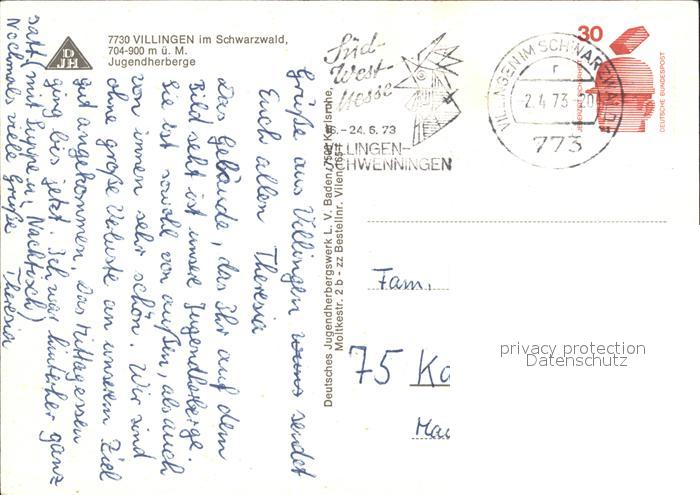 7730 VILLINGEN im Schwarzwald,
704-900 m ü. M.
Jugendherberge
DJH
Grüße aus Villingen sendet
Euch allen Theresia
Das Gebäude, das Ihr auf dem
Bild seht ist unsere Jugendherberge.
Sie ist sowohl von außen, als auch
von innen sehr schön. Wir sind
ohne große Verluste an unserem Ziel
gut angekommen. Das Mittagessen
ging bis jetzt. Ich war hinterher ganz
satt (mit Suppen, Nachtisch)
Nochmals viele Grüße Theresia
Deutsches Jugendherbergswerk L. V. Baden, 7500 Karlsruhe,
Moltkestr. 2 b - zz Bestellnr. Vilen
Süd-
West-
Messe
16.-24.6.73
VILLINGEN-
SCHWENNINGEN
VILLINGEN IM SCHWARZWALD
r
-2.4.73-20
773
30
DEUTSCHE BUNDESPOST
Fam.
75 Ka
privacy protection
Datenschutz